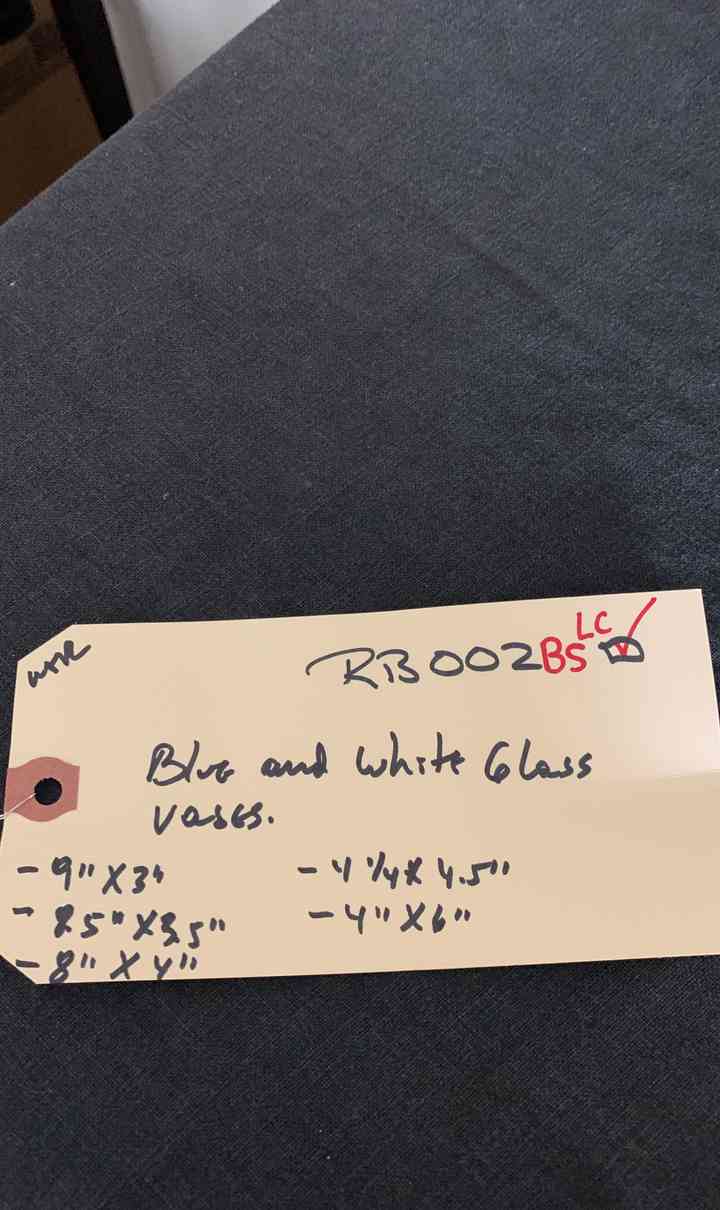 RB002BS LC
Blue and white Glass
vases.
- 9" X 3"
- 8.5" X 3.5"
- 8" X 4"
- 4 1/4 X 4.5"
- 4" X 6"